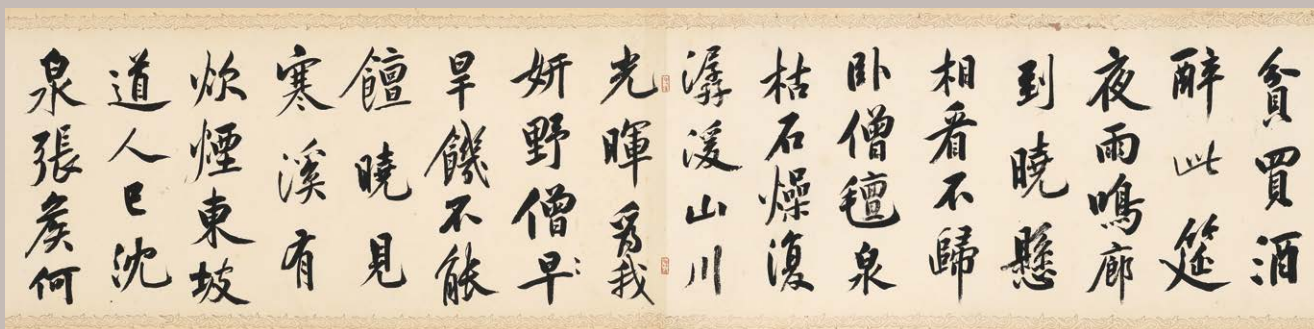 貧買酒
醉此筵
夜雨鳴廊
到曉懸
相看不歸
卧僧氊泉
枯石燥復
潺湲山川
光暉爲我
妍野僧早
旱饑不能
饘曉見
寒溪有
炊煙東坡
道人已沈
泉張矦何